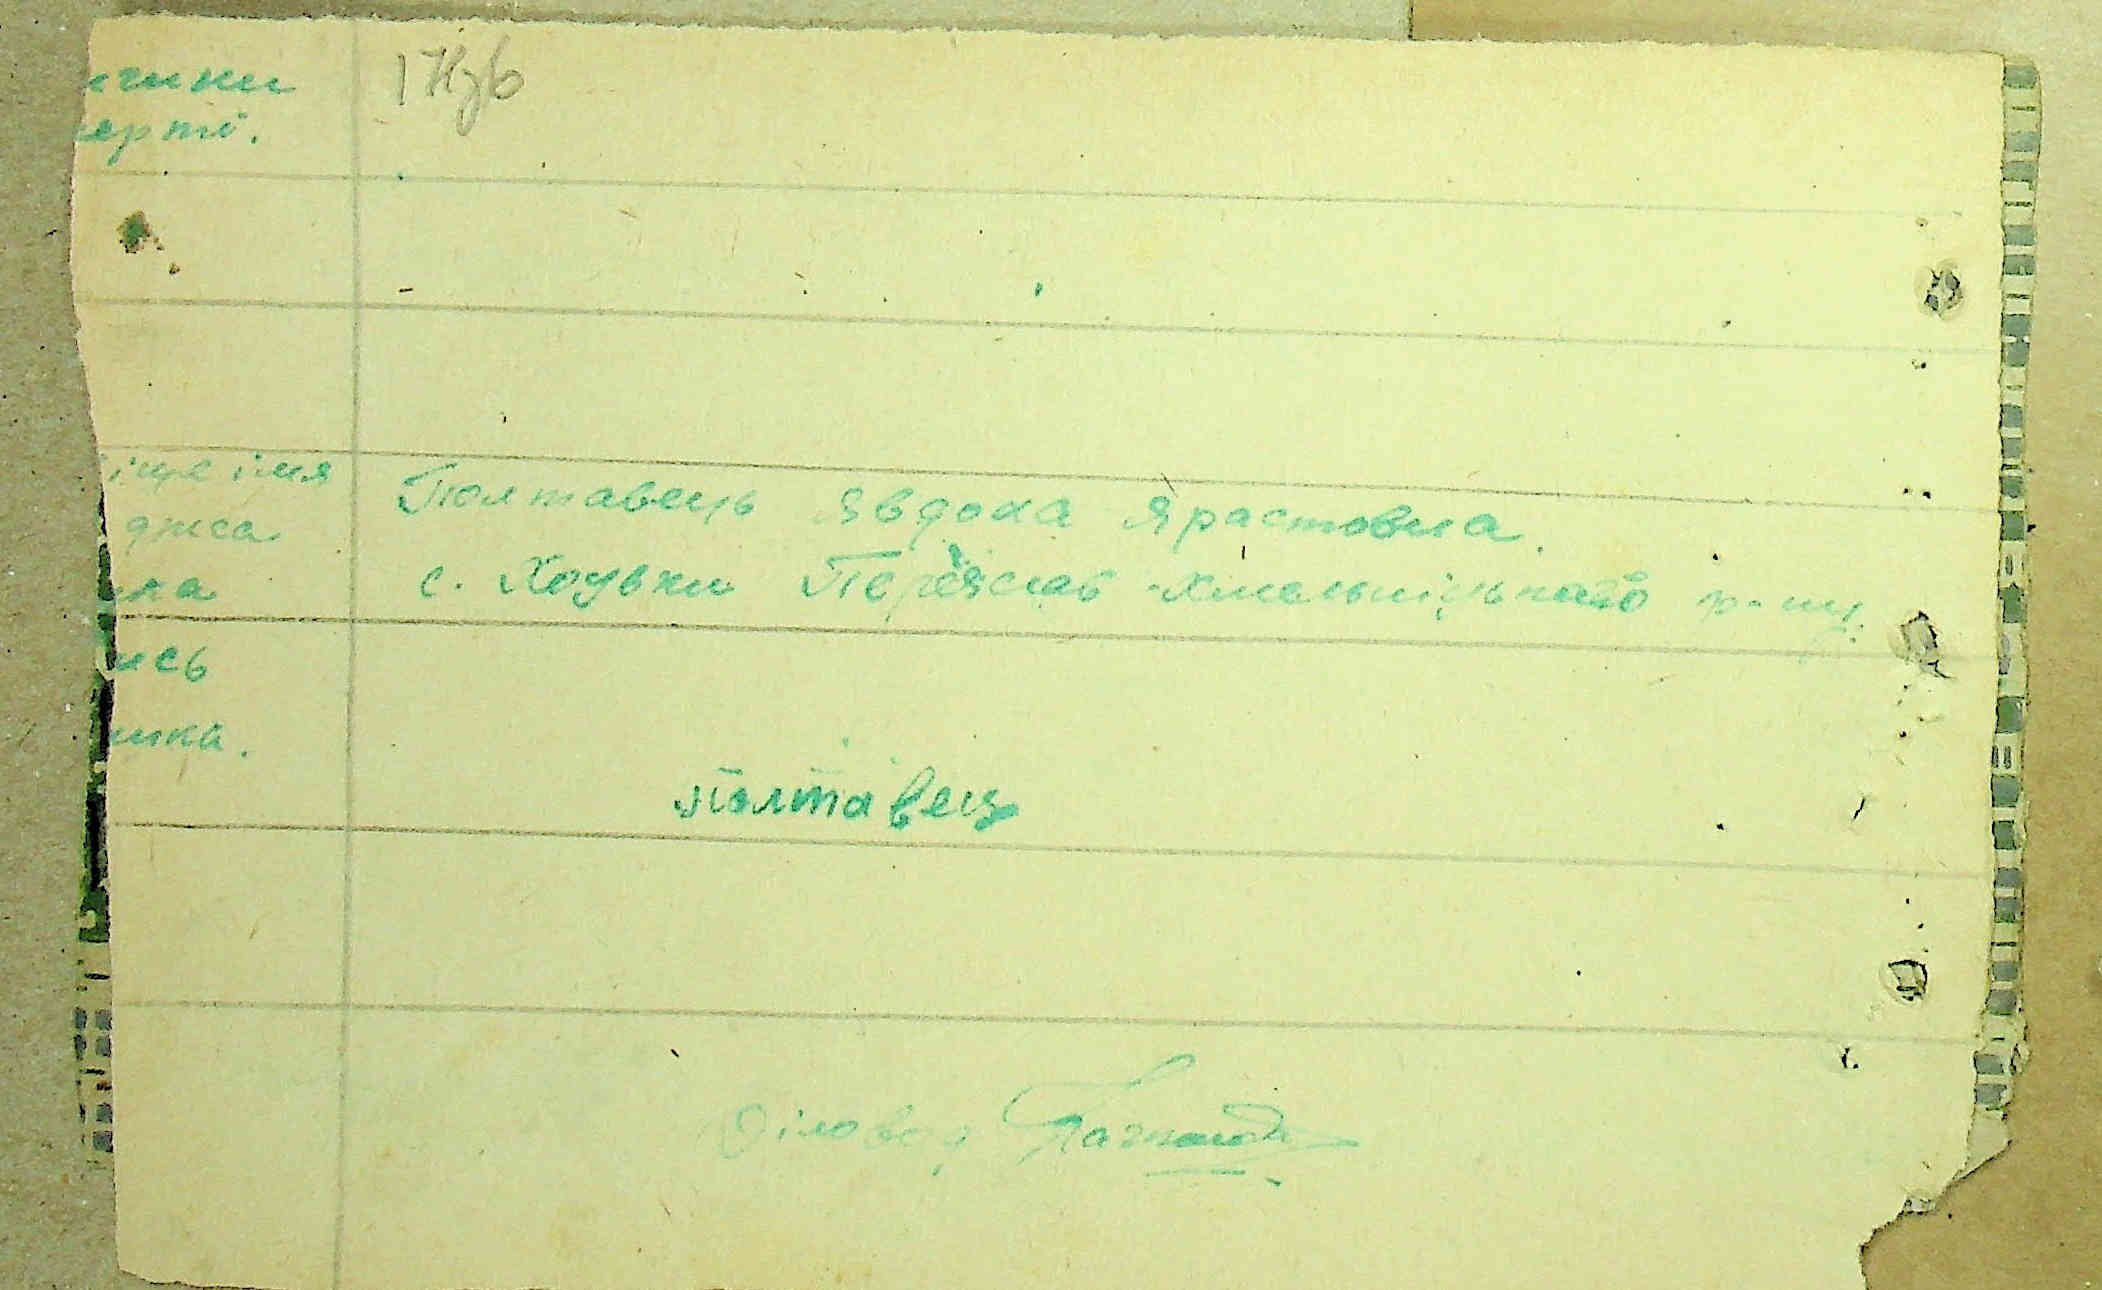 ичини
ерті.
іще імя
джса
ика
ись
ника.
Полтавець Явдоха Ярастовна.
с. Хоцьки Переяслав-Хмельніцького р-ну.
Полтавець
Діловод